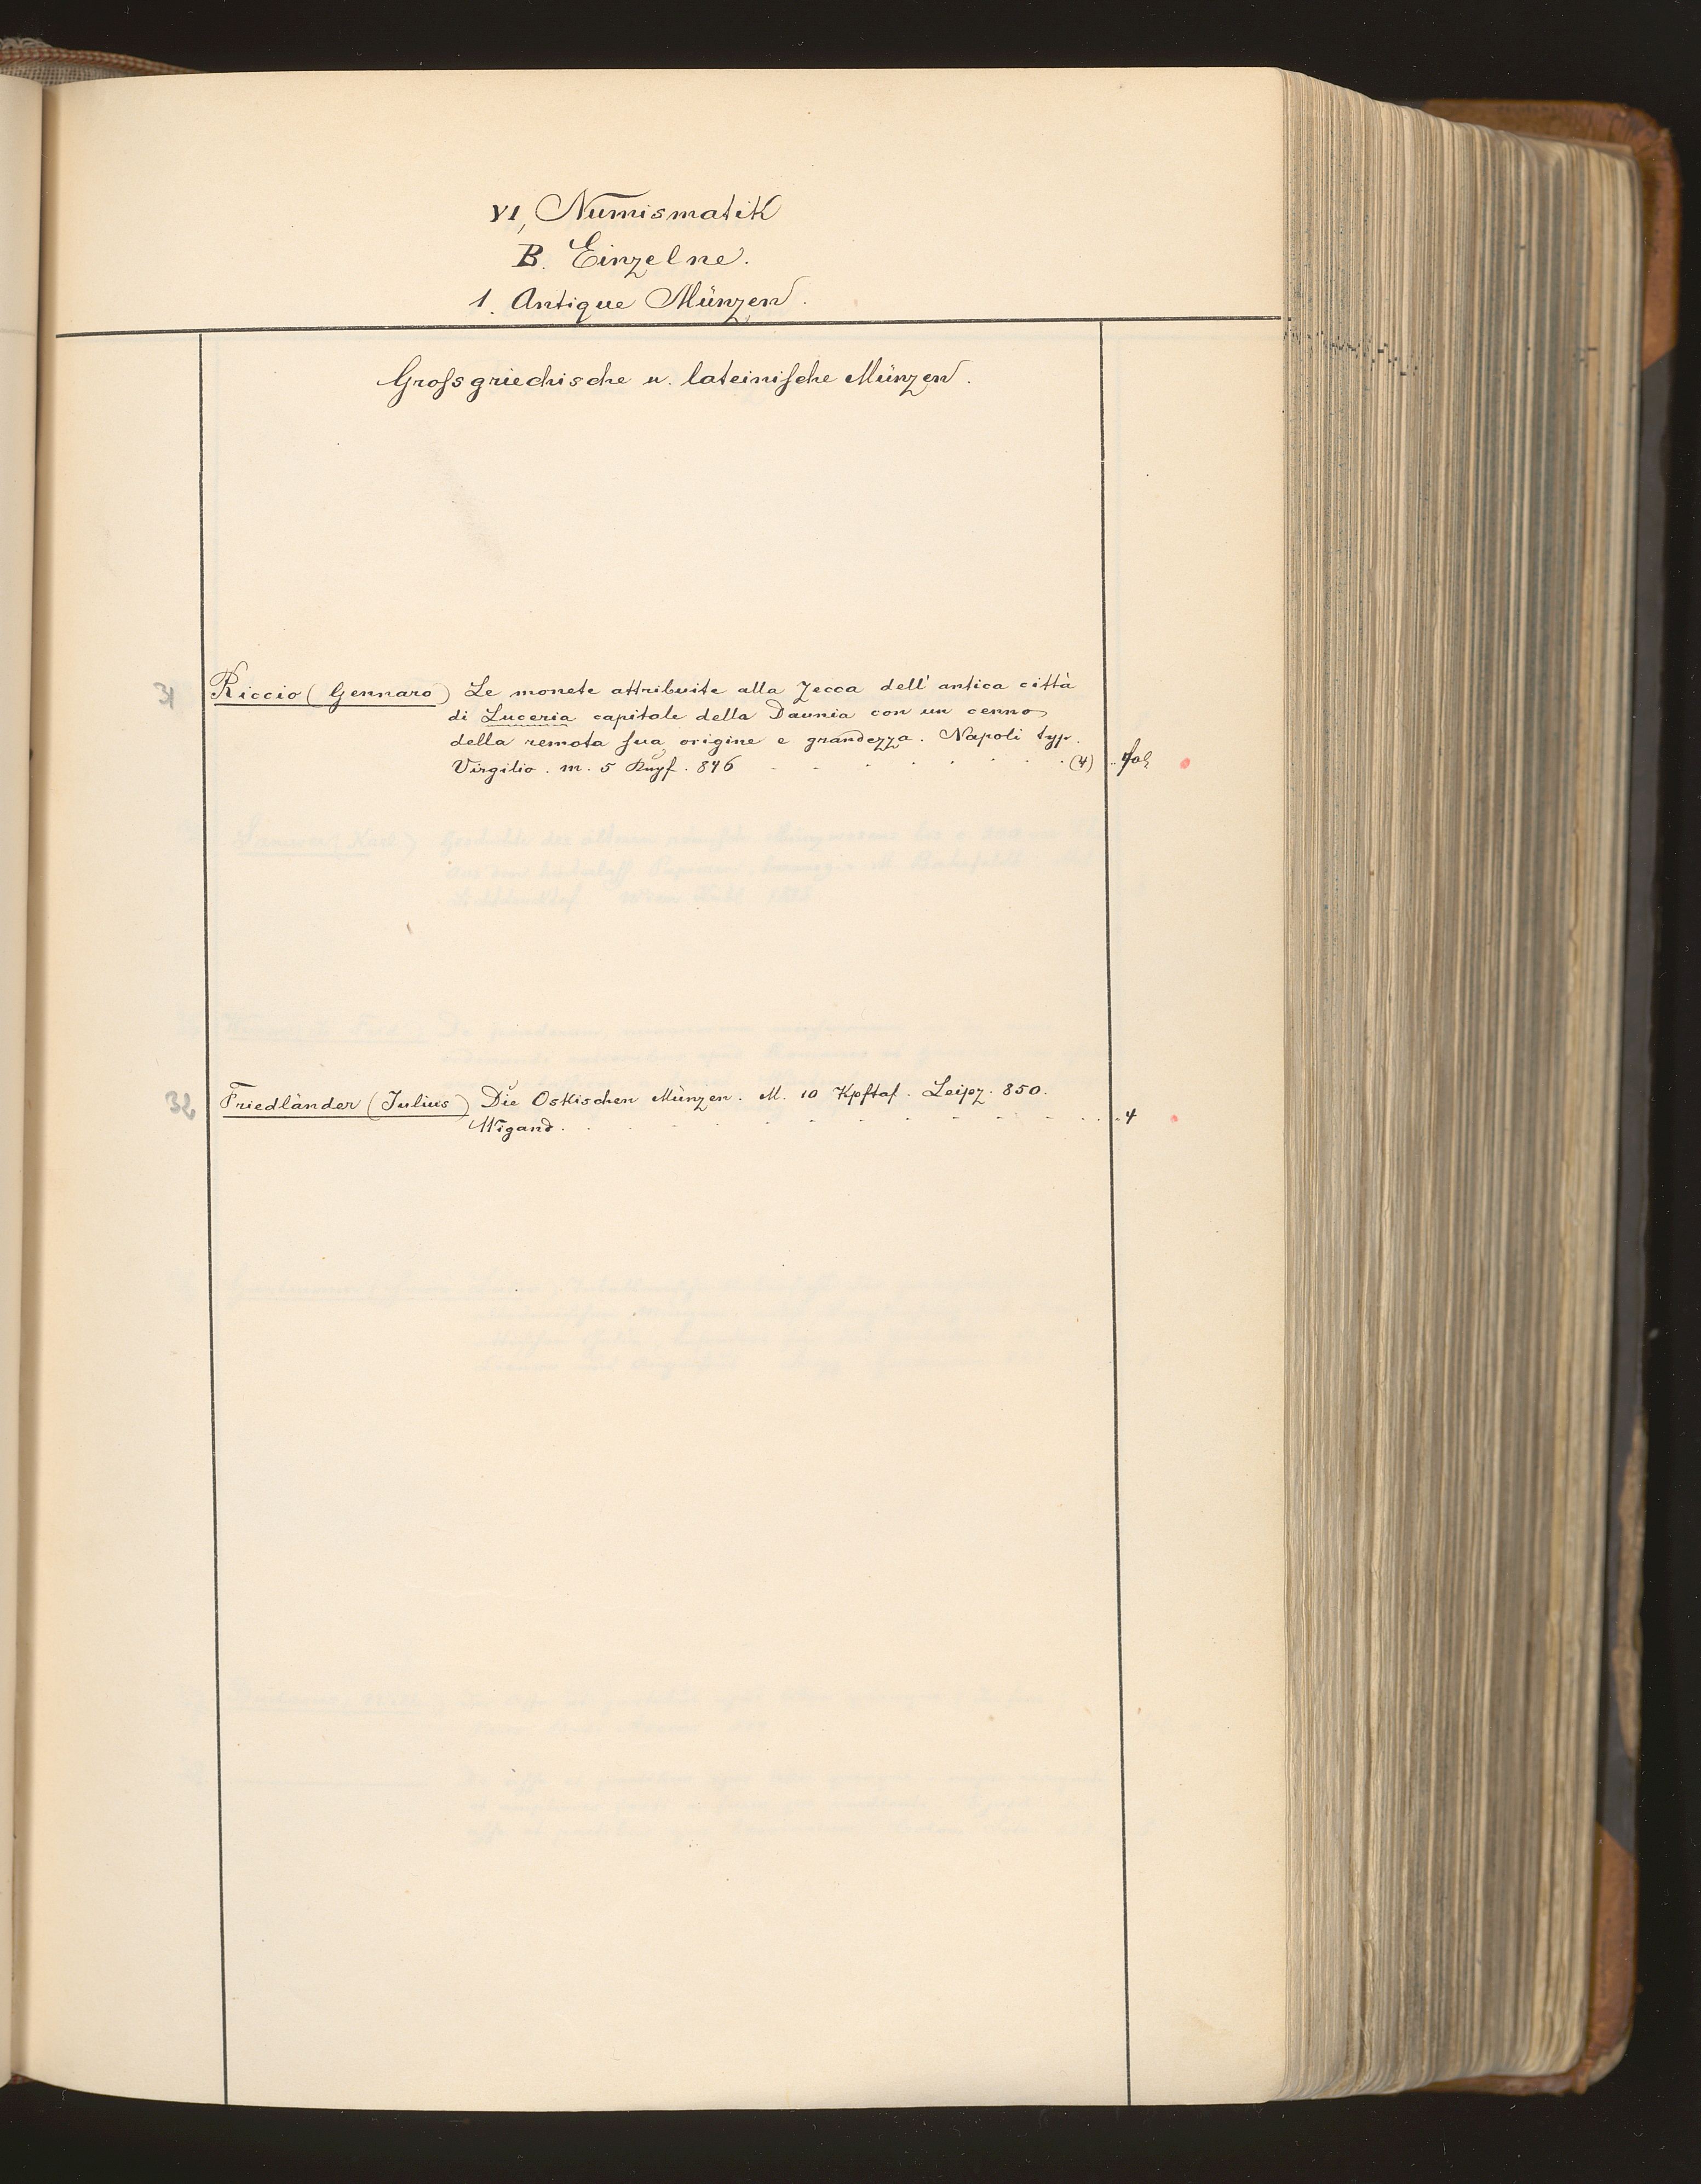 VI, Numismatik
B. Einzelne.
1. Antique Münzen.
Grofsgriechische u. lateinifche Münzen.
31 Riccio (Gennaro) Le monete attribuite alla Zecca dell' antica città
di Luceria capitale della Daunia con un cenno
della remota fua origine e grandezza. Napoli typ.
Virgilio. m. 5 Kupf. 846 . . . . . . . . (4) .. fol
32 Friedländer (Julius) Die Oskischen Münzen. M. 10 Kpftaf. Leipz. 850.
Wigand. . . . . . . . . . . . . 4